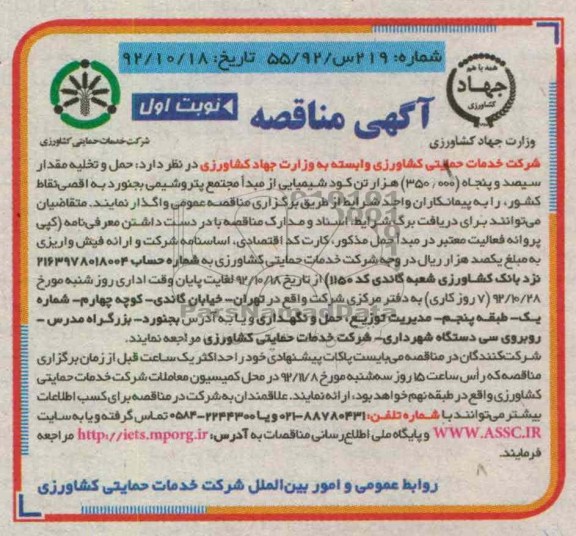 شماره: ۲۱۹س/۵۵/۹۲ تاریخ: ۹۲/۱۰/۱۸
همه با هم
جهاد
کشاورزی
وزارت جهاد کشاورزی
آگهی مناقصه
نوبت اول
شرکت خدمات حمایتی کشاورزی
شرکت خدمات حمایتی کشاورزی وابسته به وزارت جهاد کشاورزی در نظر دارد: حمل و تخلیه مقدار
سیصد و پنجاه (۳۵۰/۰۰۰) هزار تن کود شیمیایی از مبدأ مجتمع پتروشیمی بجنورد به اقصی نقاط
کشور، را به پیمانکاران واجد شرایط از طریق برگزاری مناقصه عمومی واگذار نمایند. متقاضیان
می‌توانند برای دریافت برگ شرایط، اسناد و مدارک مناقصه با در دست داشتن معرفی‌نامه (کپی
پروانه فعالیت معتبر در مبدأ حمل مذکور، کارت کد اقتصادی، اساسنامه شرکت و ارائه فیش واریزی
به مبلغ یکصد هزار ریال در وجه شرکت خدمات حمایتی کشاورزی به شماره حساب ۲۱۶۳۹۷۸۰۱۸۰۰۴
نزد بانک کشاورزی شعبه گاندی کد ۱۱۵۰) از تاریخ ۹۲/۱۰/۱۸ لغایت پایان وقت اداری روز شنبه مورخ
۹۲/۱۰/۲۸ (۷ روز کاری) به دفتر مرکزی شرکت واقع در تهران- خیابان گاندی- کوچه چهارم- شماره
یک- طبقه پنجم- مدیریت توزیع، حمل و نگهداری و یا به آدرس بجنورد- بزرگراه مدرس -
روبروی سی دستگاه شهرداری- شرکت خدمات حمایتی کشاورزی مراجعه نمایند.
شرکت‌کنندگان در مناقصه می‌بایست پاکات پیشنهادی خود را حداکثر یک ساعت قبل از زمان برگزاری
مناقصه که رأس ساعت ۱۵ روز سه‌شنبه مورخ ۹۲/۱۱/۸ در محل کمیسیون معاملات شرکت خدمات حمایتی
کشاورزی واقع در طبقه نهم خواهد بود، ارائه نمایند. علاقمندان به شرکت در مناقصه برای کسب اطلاعات
بیشتر می‌توانند با شماره تلفن: ۸۸۷۸۰۴۳۱-۰۲۱ و یا ۲۲۴۴۳۰۰-۰۵۸۴ تماس گرفته و یا به سایت
WWW.ASSC.IR و پایگاه ملی اطلاع‌رسانی مناقصات به آدرس: http://iets.mporg.ir مراجعه
فرمایند.
روابط عمومی و امور بین‌الملل شرکت خدمات حمایتی کشاورزی
ParsNamadData